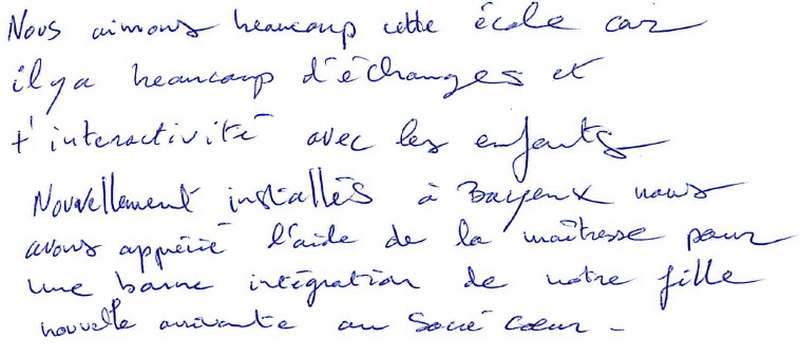 Nous aimons beaucoup cette école car
il y a beaucoup d'échanges et
d'interactivité avec les enfants
Nouvellement installés à Bayeux nous
avons apprécié l'aide de la maîtresse pour
une bonne intégration de notre fille
nouvelle arrivante au Sacré Coeur -